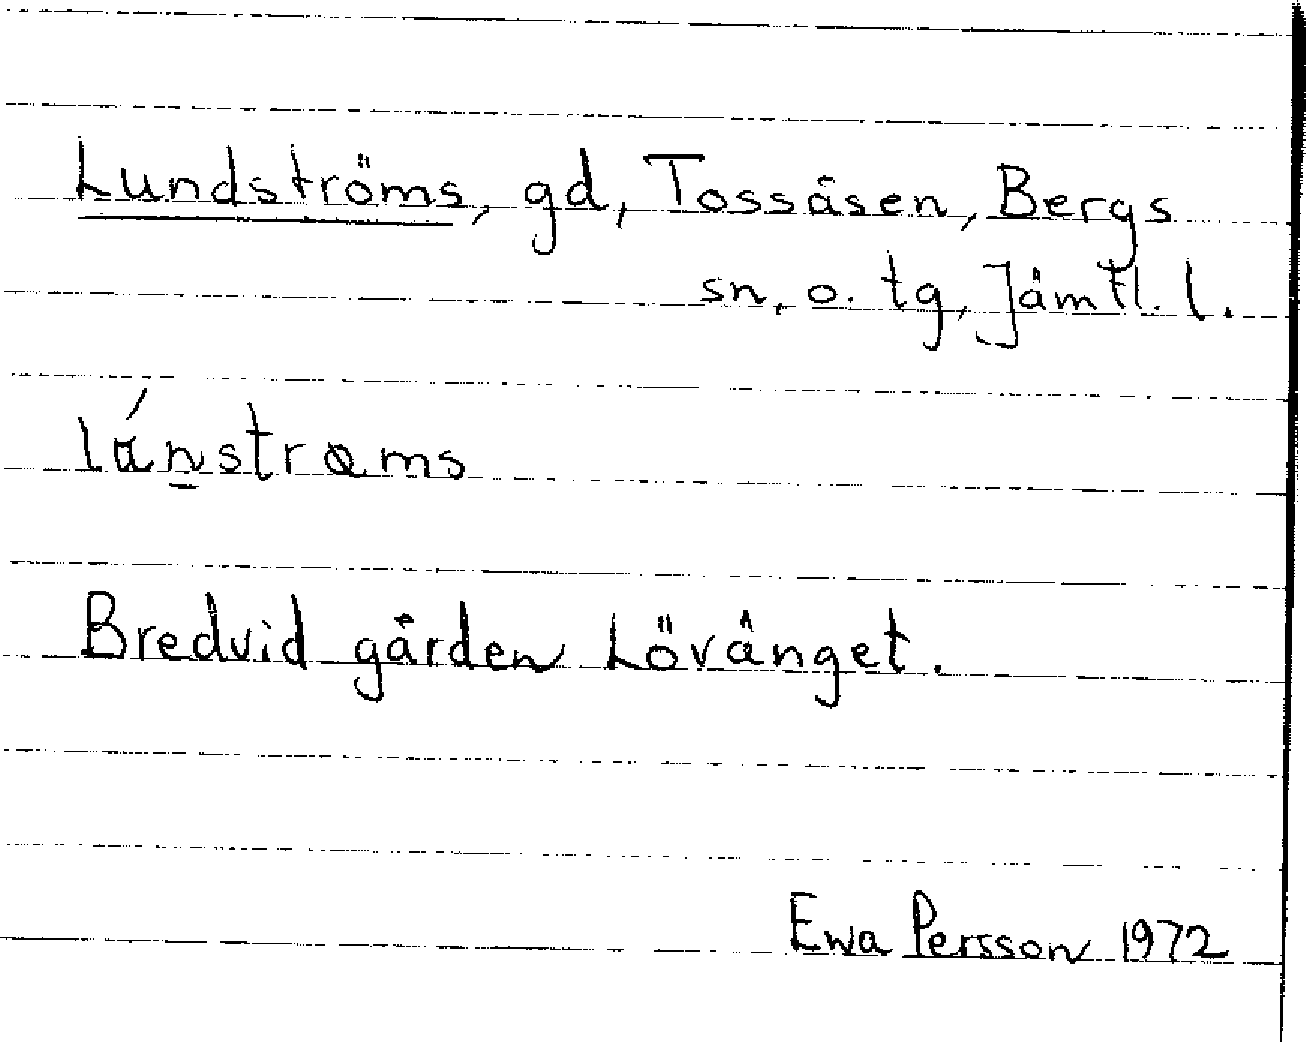 Lundströms, gd, Tossåsen, Bergs
sn. o. tg, Jämtl. l.
lún̲strøms
Bredvid gården Lövänget.
Ewa Persson 1972